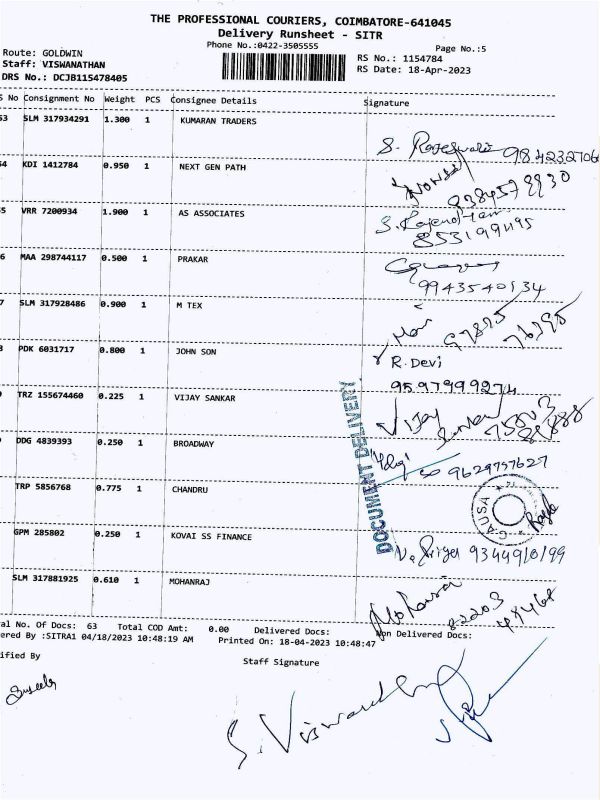 THE PROFESSIONAL COURIERS, COIMBATORE-641045
Delivery Runsheet - SITR
Phone No.:0422-3505555
Page No.:5
Route: GOLDWIN
RS No.: 1154784
Staff: VISWANATHAN
RS Date: 18-Apr-2023
DRS No.: DCJB115478405
S No Consignment No Weight PCS Consignee Details Signature
53 SLM 317934291 1.300 1 KUMARAN TRADERS
S. Rajeswari 9842332706
54 KDI 1412784 0.950 1 NEXT GEN PATH
5 VRR 7200934 1.900 1 AS ASSOCIATES
S. Rajendran
6 MAA 298744117 0.500 1 PRAKAR
9943540134
7 SLM 317928486 0.900 1 M TEX
Mani
8 PDK 6031717 0.800 1 JOHN SON
R. Devi
9597999274
TRZ 155674460 0.225 1 VIJAY SANKAR
Vijay Sankar
DOCUMENT DELIVERY
DDG 4839393 0.250 1 BROADWAY
9629757627
TRP 5856768 0.775 1 CHANDRU
GAUSA
GPM 285802 0.250 1 KOVAI SS FINANCE
V. Priya
SLM 317881925 0.610 1 MOHANRAJ
al No. Of Docs: 63 Total COD Amt: 0.00 Delivered Docs: Non Delivered Docs:
ered By :SITRA1 04/18/2023 10:48:19 AM Printed On: 18-04-2023 10:48:47
ified By
Staff Signature
S. Viswanathan